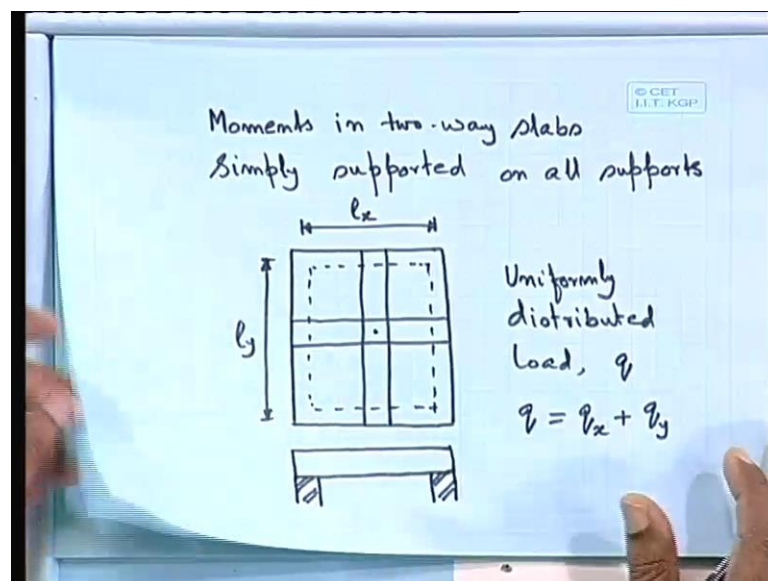 © CET
I.I.T. KGP
Moments in two-way slabs
Simply supported on all supports
lx
ly
Uniformly
distributed
Load, q
q = qx + qy